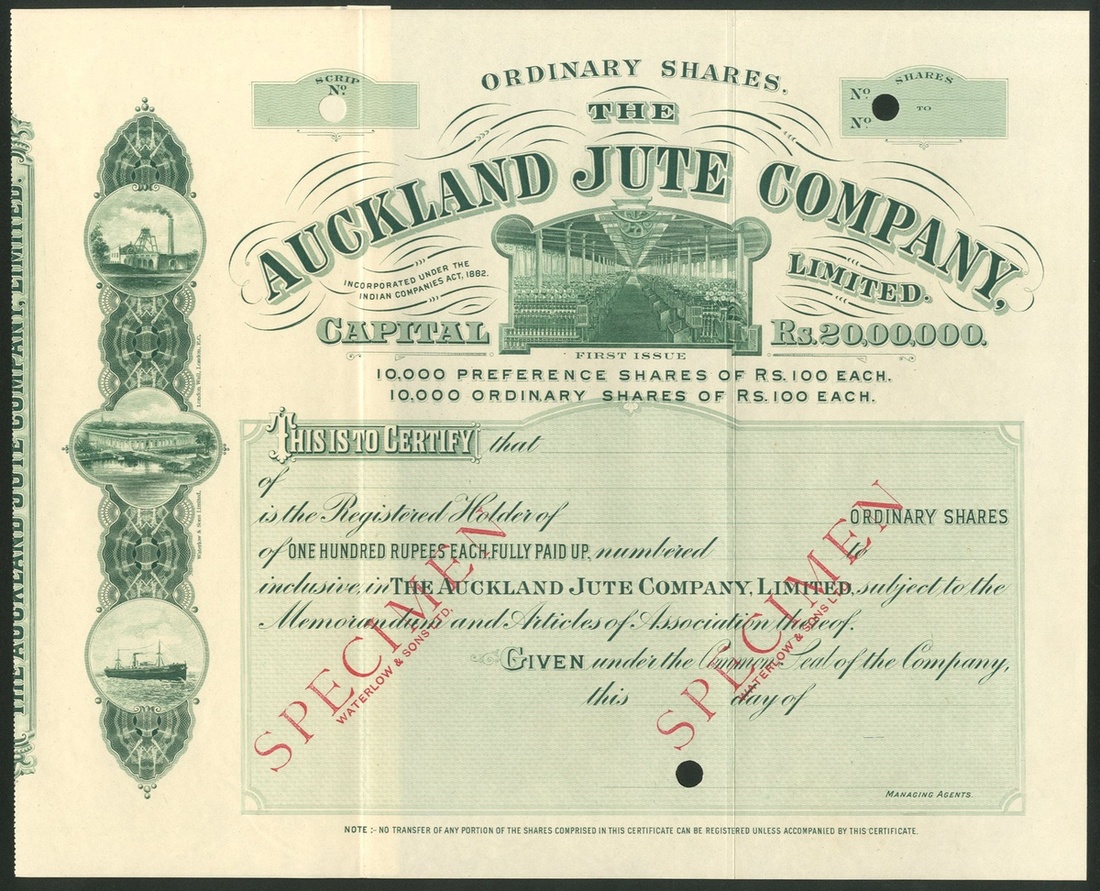 ORDINARY SHARES.
SCRIP
No.
SHARES
No. TO
No.
THE
AUCKLAND JUTE COMPANY,
LIMITED.
INCORPORATED UNDER THE
INDIAN COMPANIES ACT, 1882.
CAPITAL Rs. 20,00,000.
FIRST ISSUE
10,000 PREFERENCE SHARES OF Rs. 100 EACH.
10,000 ORDINARY SHARES OF Rs. 100 EACH.
THIS IS TO CERTIFY that
of
is the Registered Holder of ORDINARY SHARES
of ONE HUNDRED RUPEES EACH, FULLY PAID UP, numbered to
inclusive, in THE AUCKLAND JUTE COMPANY, LIMITED, subject to the
Memorandum and Articles of Association thereof.
GIVEN under the Common Seal of the Company,
this day of
MANAGING AGENTS.
NOTE :- NO TRANSFER OF ANY PORTION OF THE SHARES COMPRISED IN THIS CERTIFICATE CAN BE REGISTERED UNLESS ACCOMPANIED BY THIS CERTIFICATE.
SPECIMEN
WATERLOW & SONS LTD.
SPECIMEN
WATERLOW & SONS LTD.
Waterlow & Sons Limited, London Wall, London, E.C.
THE AUCKLAND JUTE COMPANY, LIMITED.